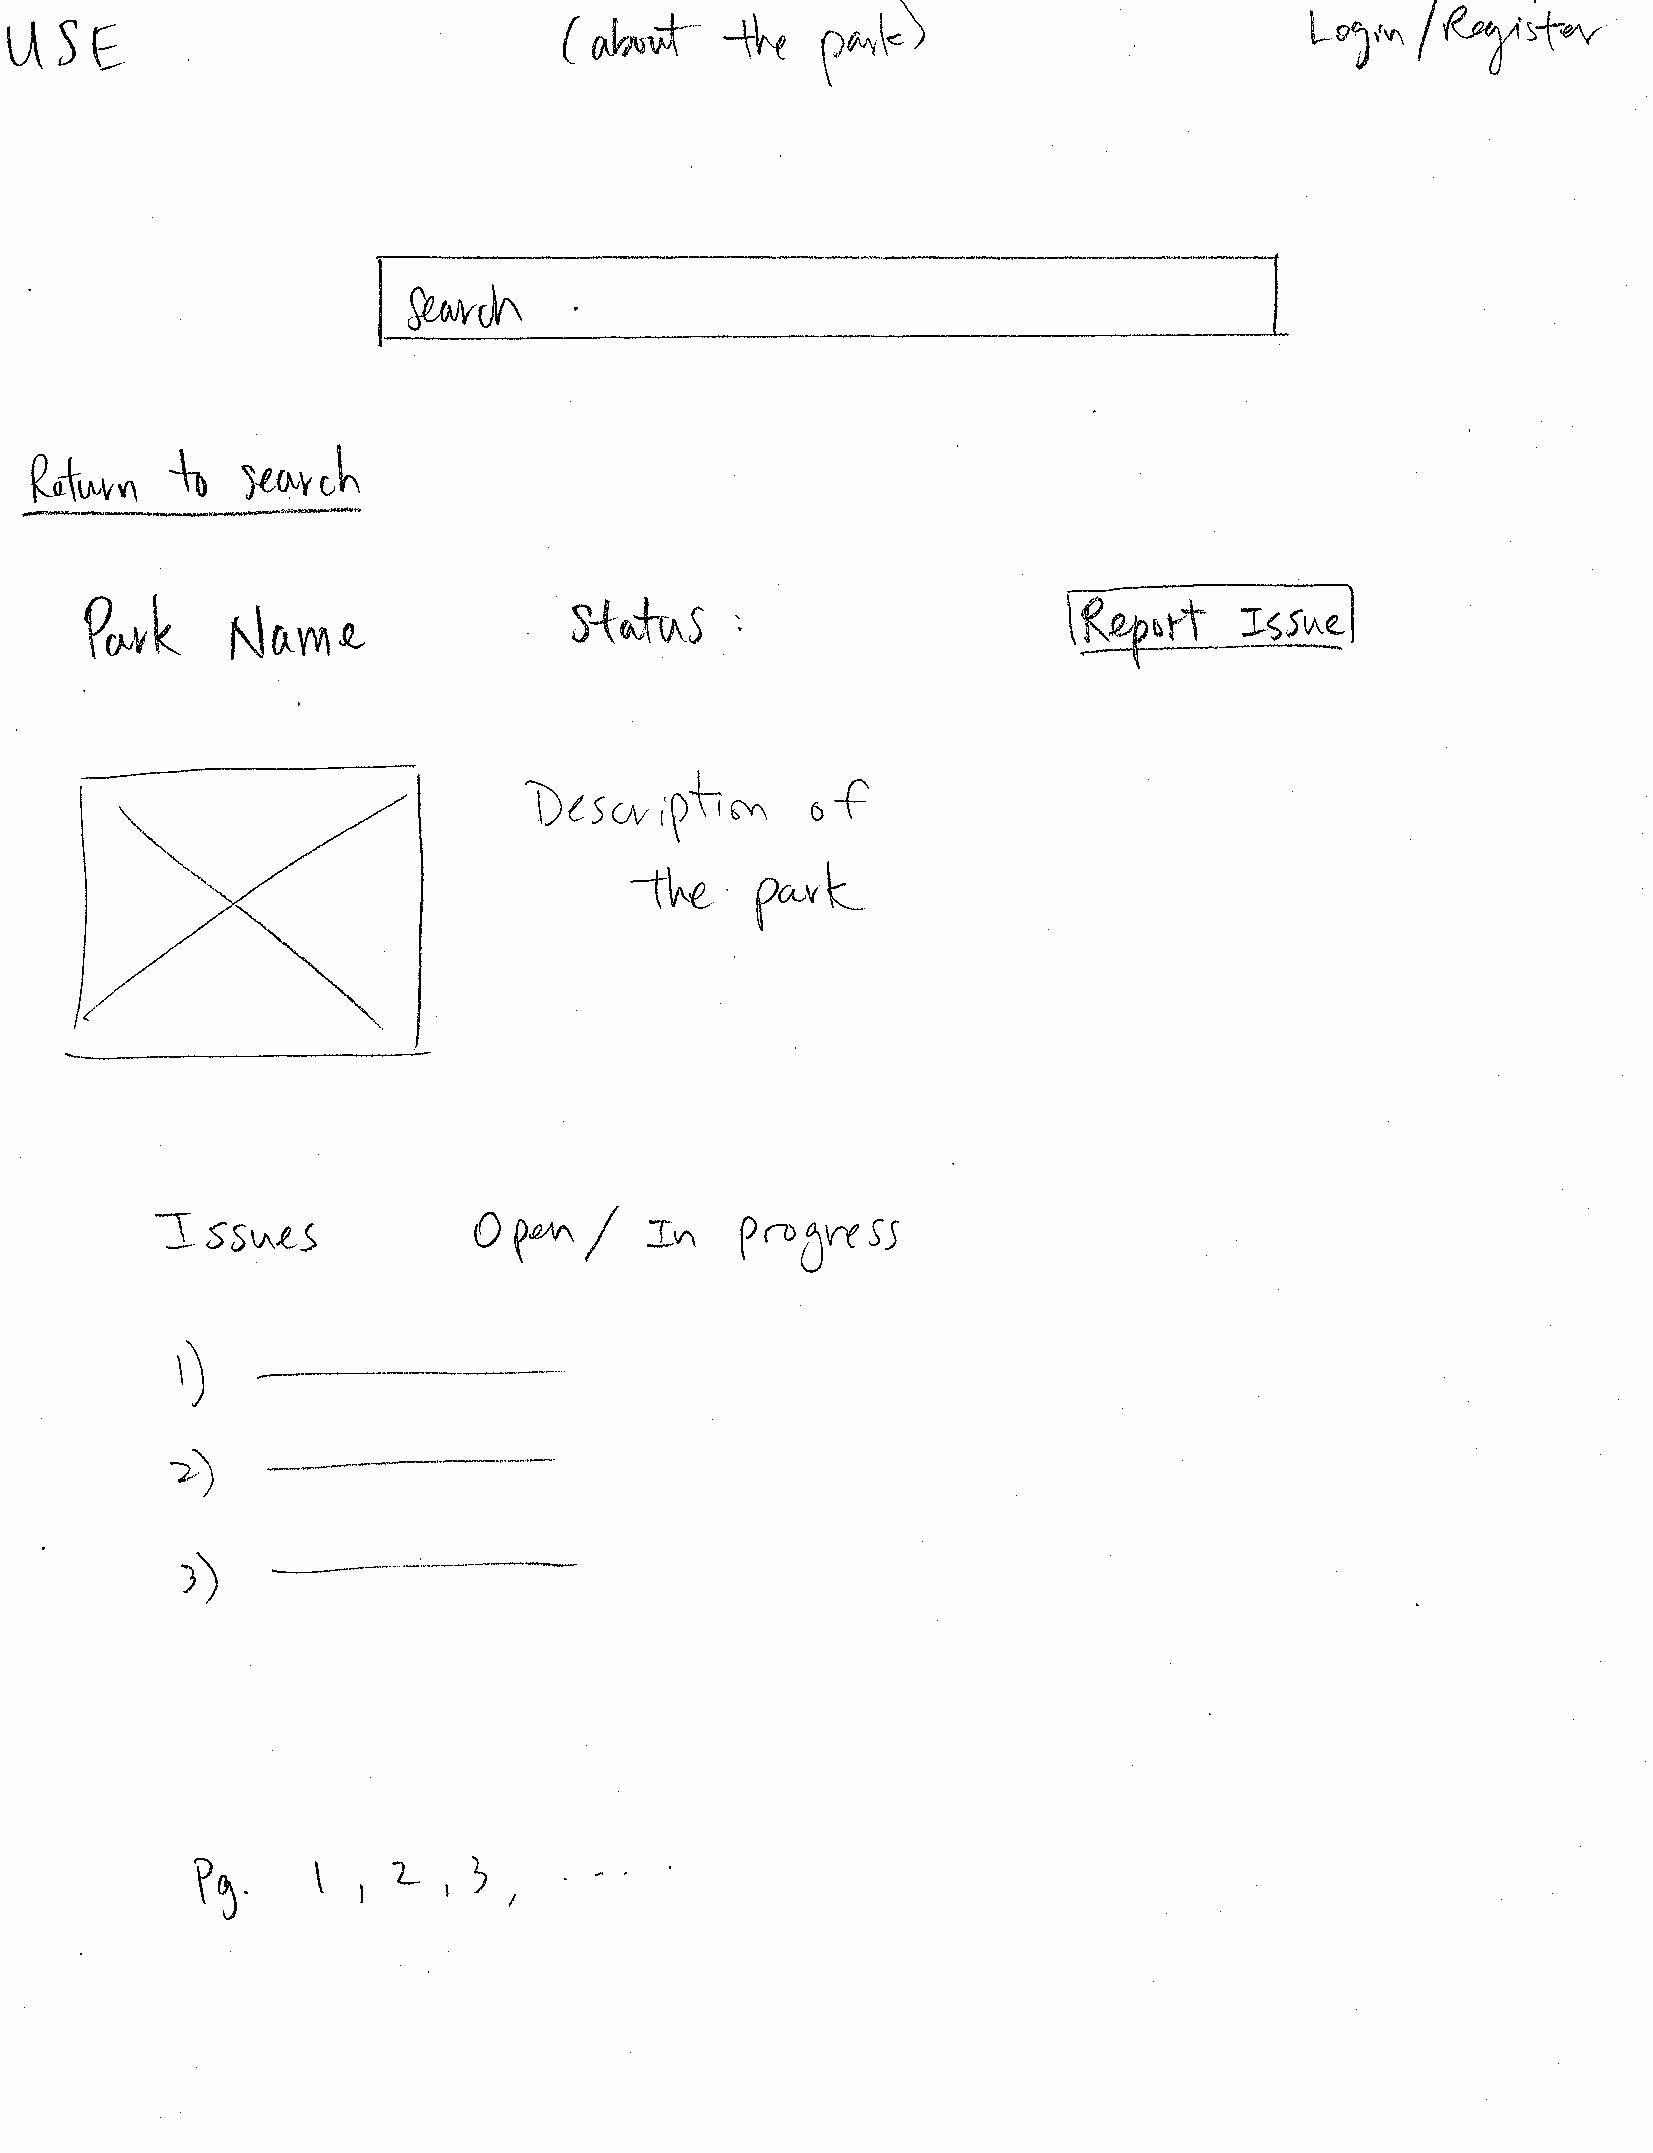 USE (about the park) Login/Register
Search
Return to search
Park Name Status: Report Issue
Description of
the park
Issues Open/ In progress
1)
2)
3)
Pg. 1, 2, 3, .....